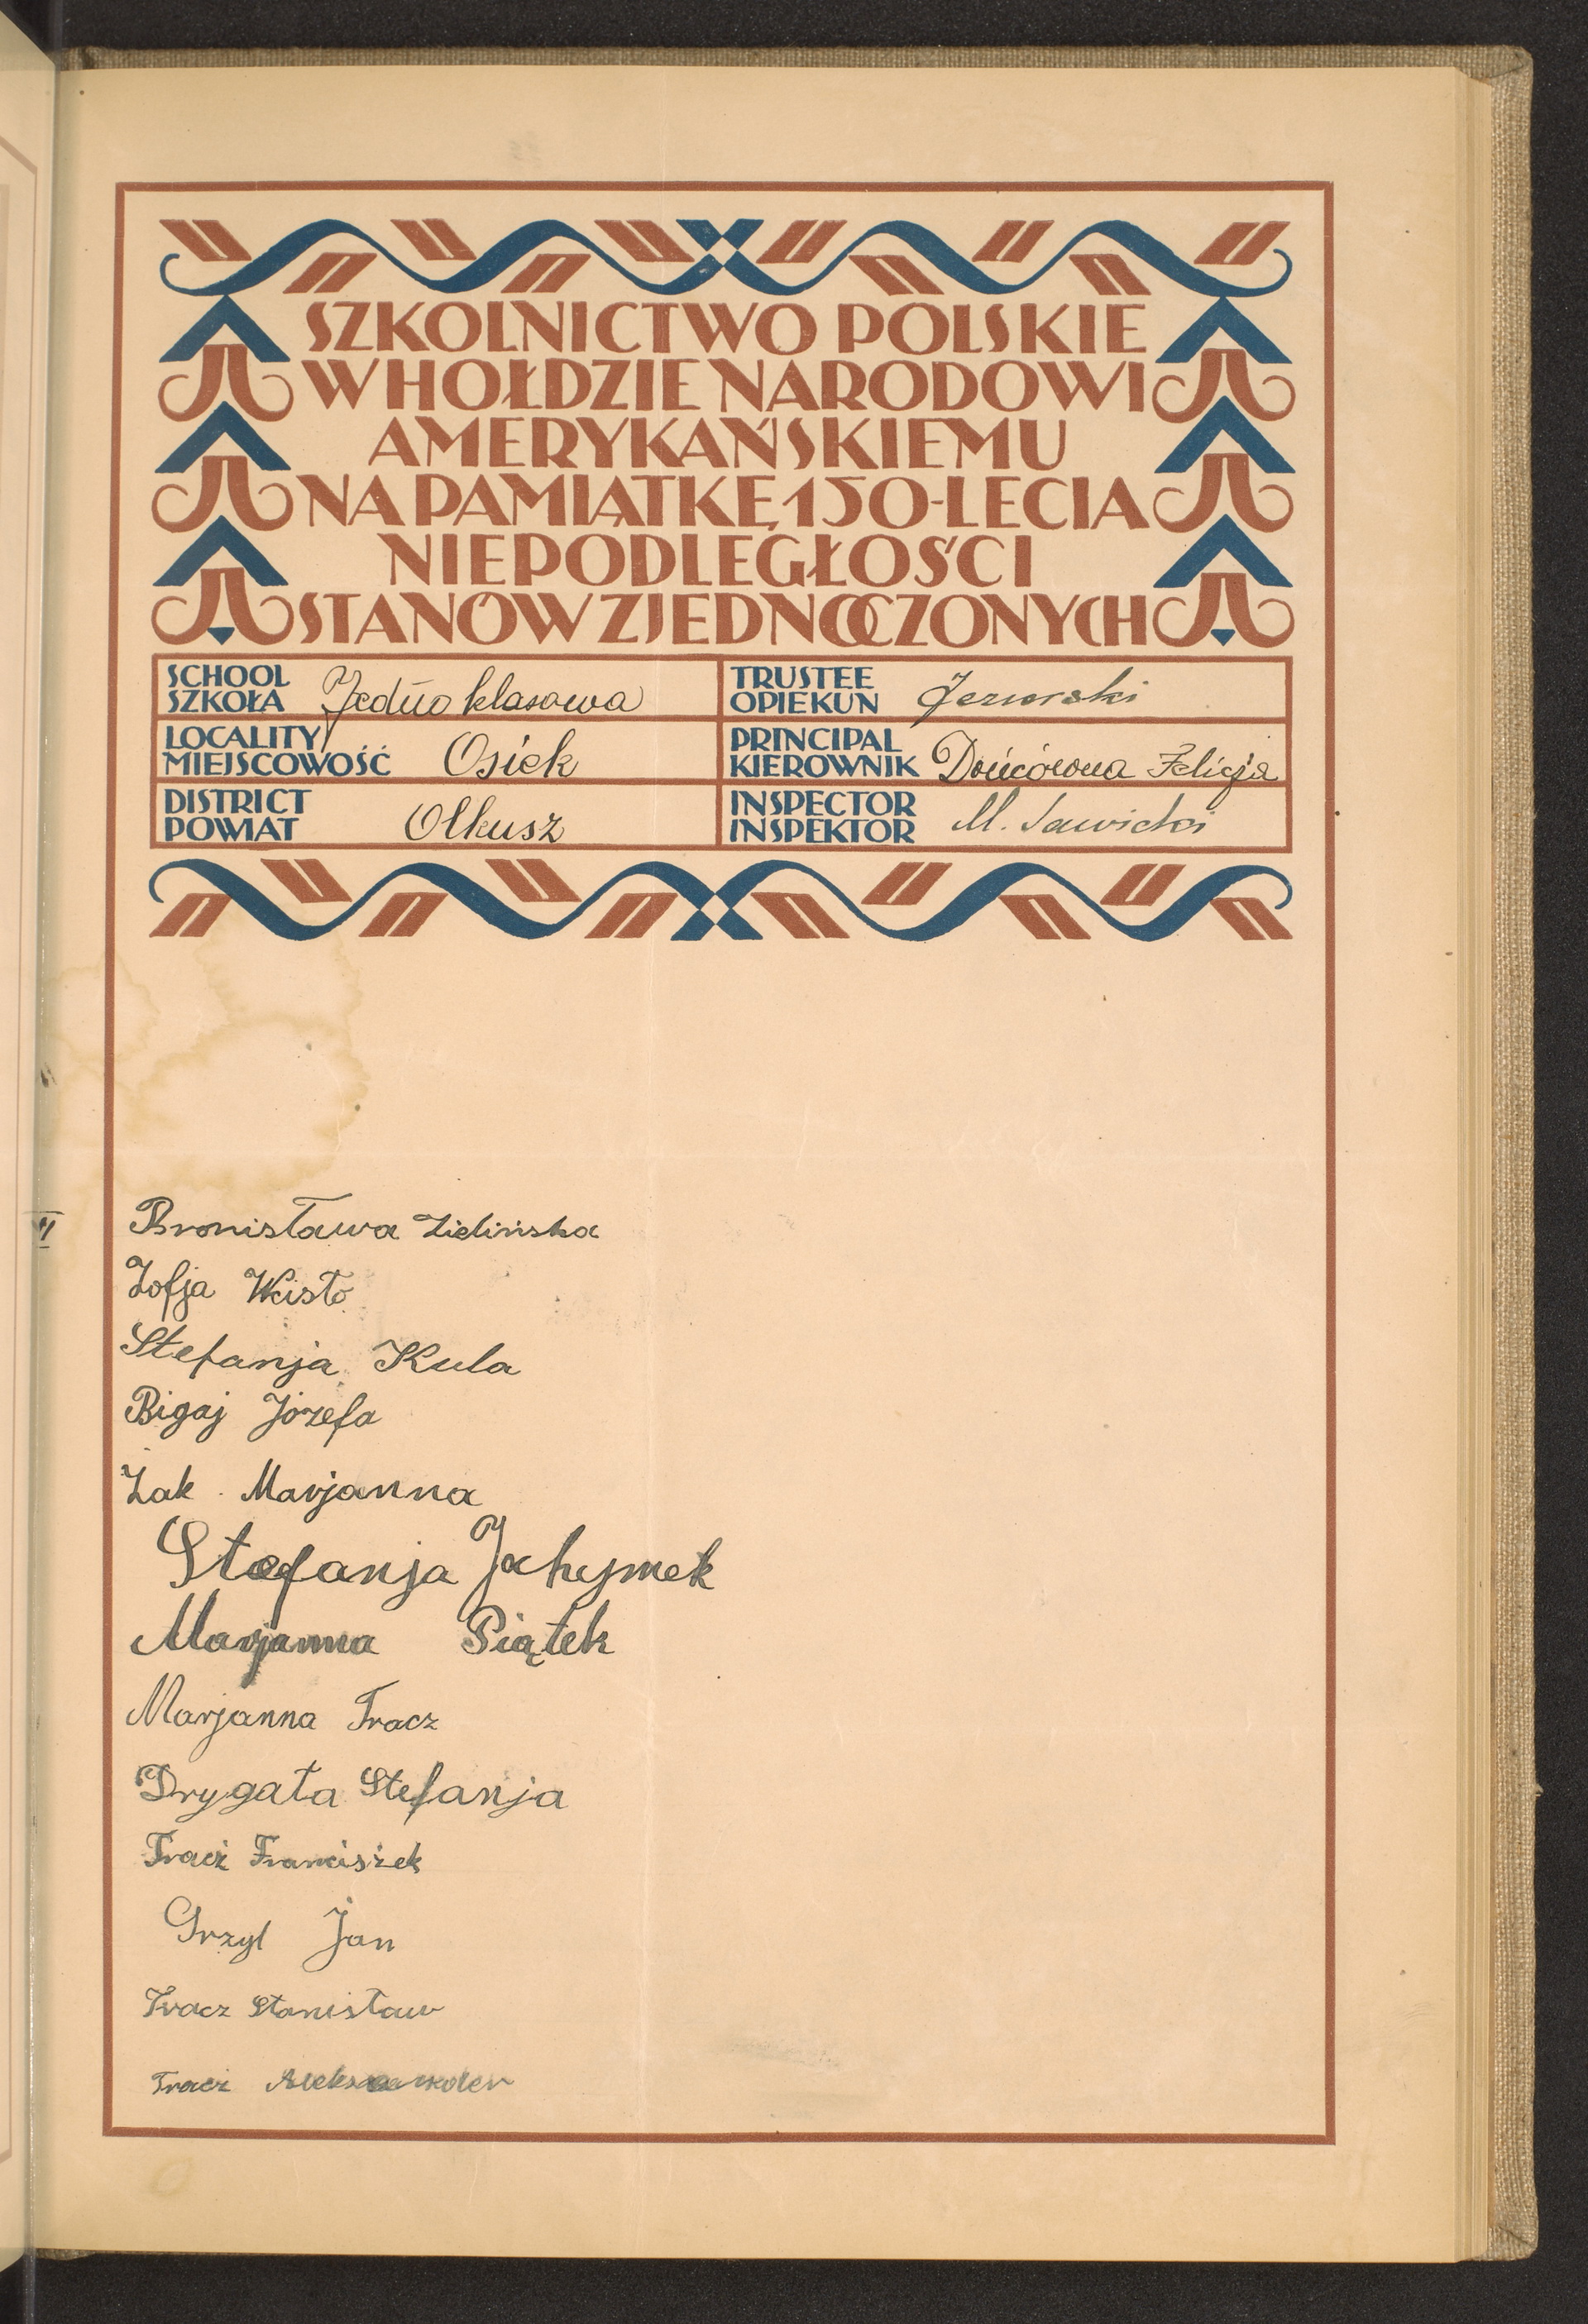 SZKOLNICTWO POLSKIE
W HOŁDZIE NARODOWI
AMERYKAŃSKIEMU
NA PAMIĄTKĘ 150-LECIA
NIEPODLEGŁOŚCI
STANÓW ZJEDNOCZONYCH
SCHOOL
SZKOŁA Jedno klasowa
TRUSTEE
OPIEKUN Jezierski
LOCALITY
MIEJSCOWOŚĆ Osiek
PRINCIPAL
KIEROWNIK Felicja
DISTRICT
POWIAT Olkusz
INSPECTOR
INSPEKTOR M. Sawicki
Bronisława Zielińska
Zofja Wcisło
Stefanja Kula
Bigaj Józefa
Żak Marjanna
Stefanja Jochymek
Marjanna Piątek
Marjanna Tracz
Drygała Stefanja
Tracz Franciszek
Grzyl Jan
Tracz Stanisław
Tracz Aleksander